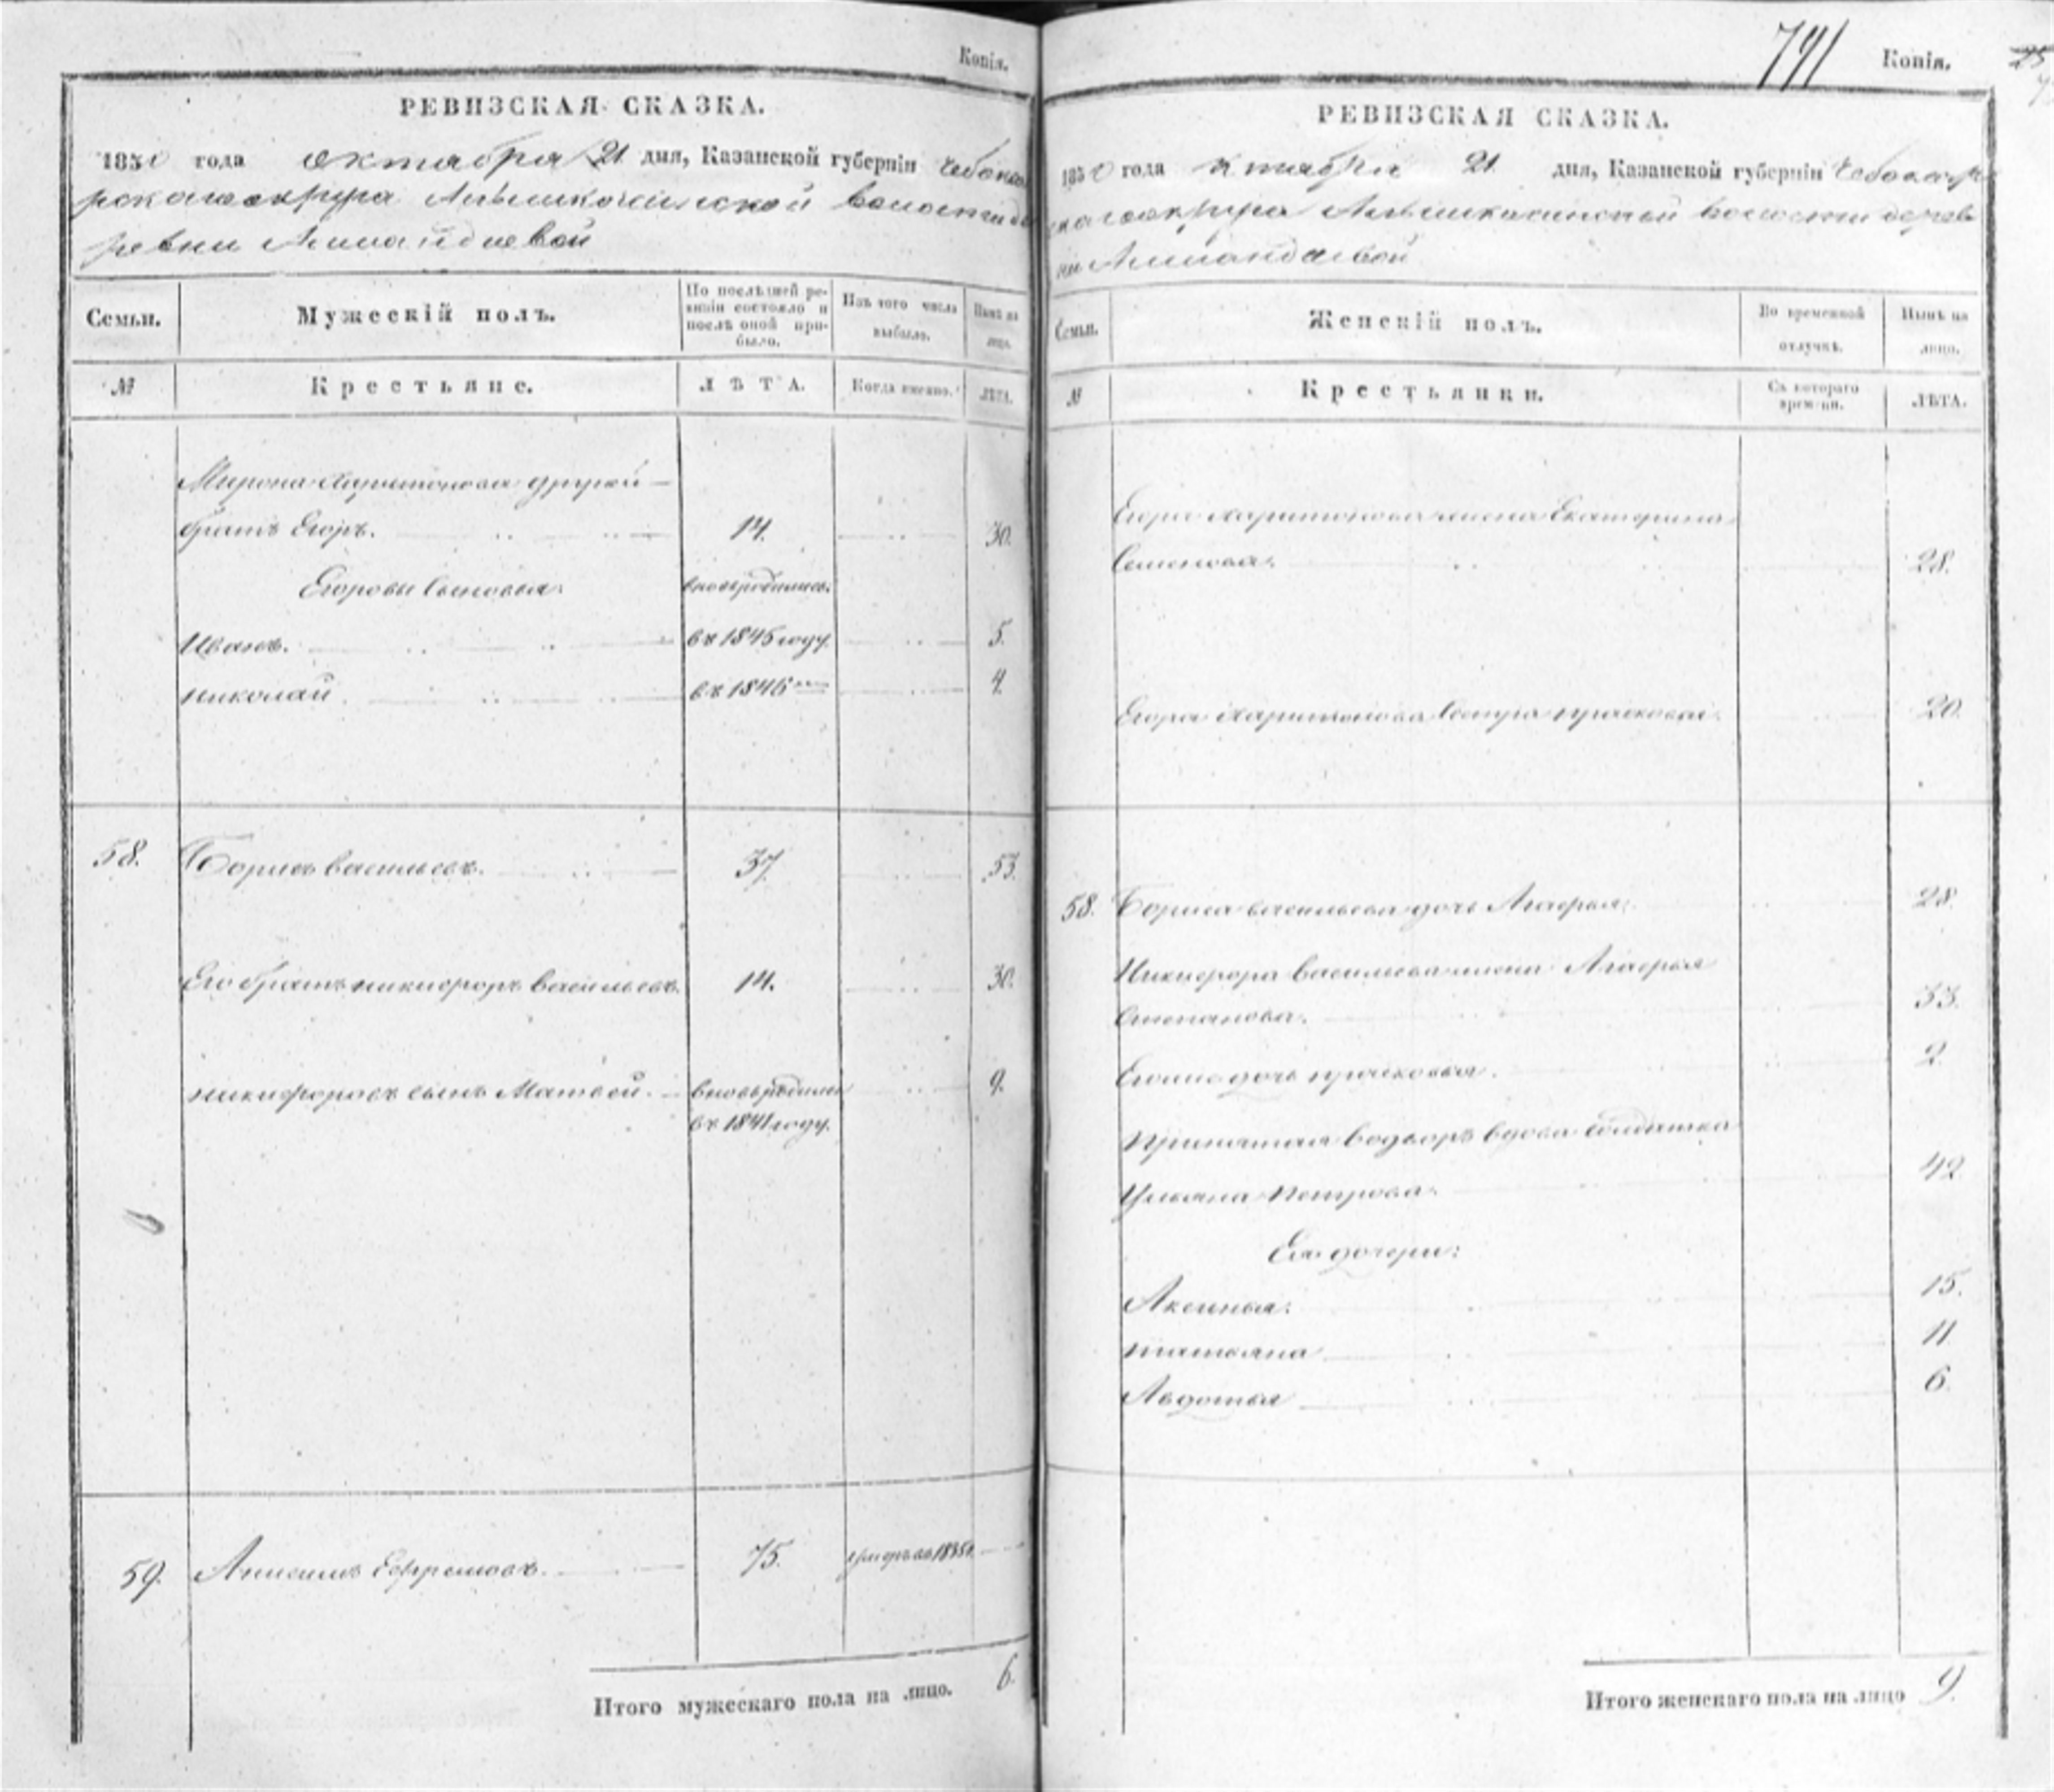 Копія.
РЕВИЗСКАЯ СКАЗКА.
1850 года октабра 21 дня, Казанской губерніи Чебокса
рскагоокруга волостиде
ревни
Семьи.
Мужескій полъ.
По послѣдней ре-
визіи состояло и
послѣ оной при-
было.
Изъ того числа
выбыло.
Нынѣ на
лицо.
№
Крестьяне.
ЛѢТА.
Когда имянно.
ЛѢТА.
Мирона Харитонова другой
братъ Егоръ. 14. 30.
Егоровы Сыновья: вновьродились.
Иванъ. въ 1845 году. 5.
николай въ 1846 4.
58. Борисъ васильевъ. 37. 53.
Его братъ никифоръ Васильевъ. 14. 30.
никифоровъ сынъ Матвей. вновьродился 9.
въ 1841 году.
59. Анисимъ Ефремовъ. 75. умеръ въ 1835
Итого мужескаго пола на лицо. 6.
741 Копія.
РЕВИЗСКАЯ СКАЗКА.
1850 года октабра 21 дня, Казанской губерніи Чебоксар
скагоокруга волости дерев
ни
Семьи.
Женскій полъ.
Во временной
отлучкѣ.
Нынѣ на
лицо.
№
Крестьянки.
Съ котораго
времени.
ЛѢТА.
Егора Харитонова жена Екатерина
Семенова. 28.
Егора Харитонова Сестра прасковья. 20.
58. Бориса васильева дочь Агафья. 28.
Никифора Васильева жена Агафья
Степанова. 33.
Егоже дочь прасковья. 2.
Принятая водворъ вдова Солдатка
Ульяна Петрова. 42.
Ея дочери:
Аксинья. 15.
татьяна 11.
Авдотья 6.
Итого женскаго пола на лицо 9.